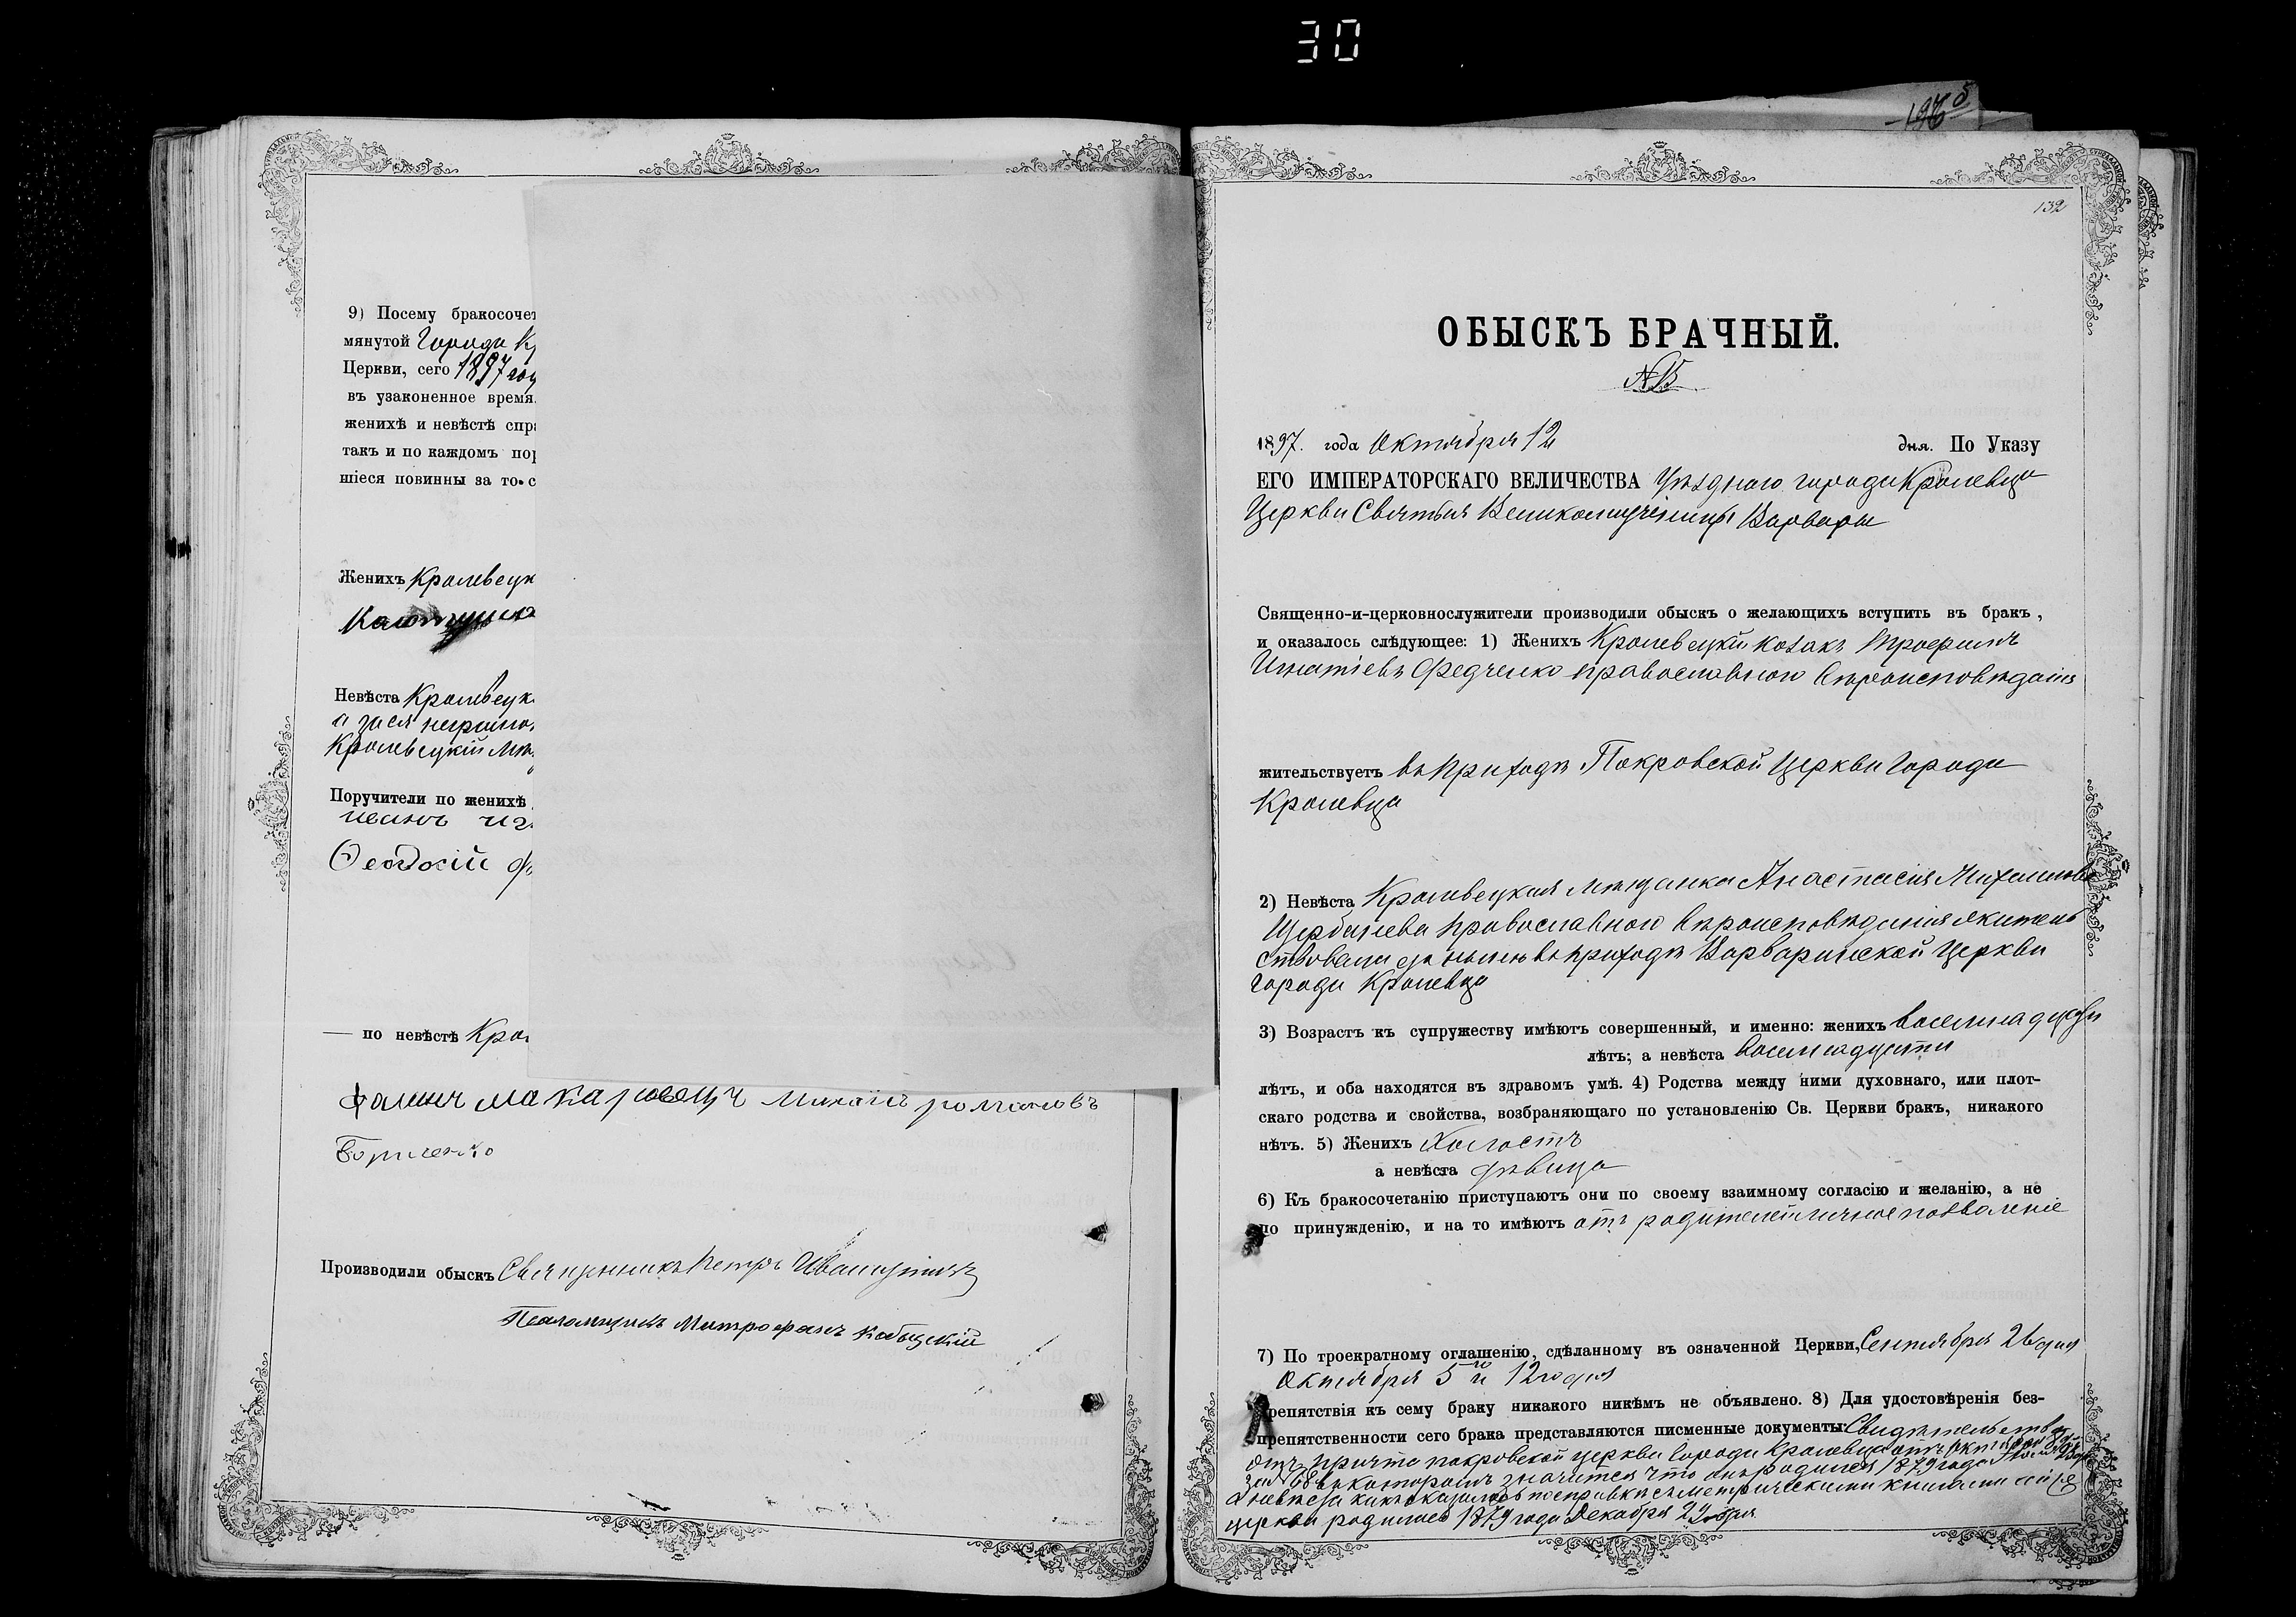 30
9) Посему бракосочет
мянутой Города Кр
Церкви, сего 1897 год
въ узаконенное время
женихѣ и невѣстѣ спра
такъ и по каждомъ пор
шіеся повинны за то с
Женихъ Кролевецк
Невѣста Кролевецк
Кролевецкій
Поручители по женихѣ
Ѳеодосій
— по невѣстѣ Кро
Макаровецъ романовъ
Производили обыскъ Священникъ Петръ
Псаломщикъ Митрофанъ
132
ОБЫСКЪ БРАЧНЫЙ.
1897. года Октября 12 дня. По Указу
ЕГО ИМПЕРАТОРСКАГО ВЕЛИЧЕСТВА Уѣзднаго города Кролевца
Церкви Святыя Великомученицы Варвары
Священно-и-церковнослужители производили обыскъ о желающихъ вступить въ бракъ,
и оказалось слѣдующее: 1) Женихъ Кролевецкій козакъ Трофимъ
Игнатіевъ Федченко православного вѣроисповѣданія
жительствуетъ въ приходѣ Покровской Церкви Города
Кролевца
2) Невѣста Кролевецкая мѣщанка Анастасія Михаилова
Щербачева православного вѣроисповѣданія житель
ствовала до нынѣ въ приходѣ Варваринской Церкви
города Кролевца
3) Возрастъ къ супружеству имѣютъ совершенный, и именно: женихъ восемнадцати
лѣтъ; а невѣста восемнадцати
лѣтъ, и оба находятся въ здравомъ умѣ. 4) Родства между ними духовнаго, или плот-
скаго родства и свойства, возбраняющаго по установленію Св. Церкви бракъ, никакого
нѣтъ. 5) Женихъ холостъ
а невѣста дѣвица
6) Къ бракосочетанію приступаютъ они по своему взаимному согласію и желанію, а не
по принужденію, и на то имѣютъ отъ родителей личное позволеніе
7) По троекратному оглашенію, сдѣланному въ означенной Церкви, Сентября 26 дня
Октября 5 и 12 го дня
препятствія къ сему браку никакого никѣмъ не объявлено. 8) Для удостовѣренія без-
препятственности сего брака представляются писменные документы: Свидѣтельство
отъ причта покровской церкви города Кролевца отъ
въ которомъ значится что онъ родился 1879 года
а невѣста какъ оказалось по справкѣ съ метрическими книгами
церкви родилась 1879 года Декабря 22 дня